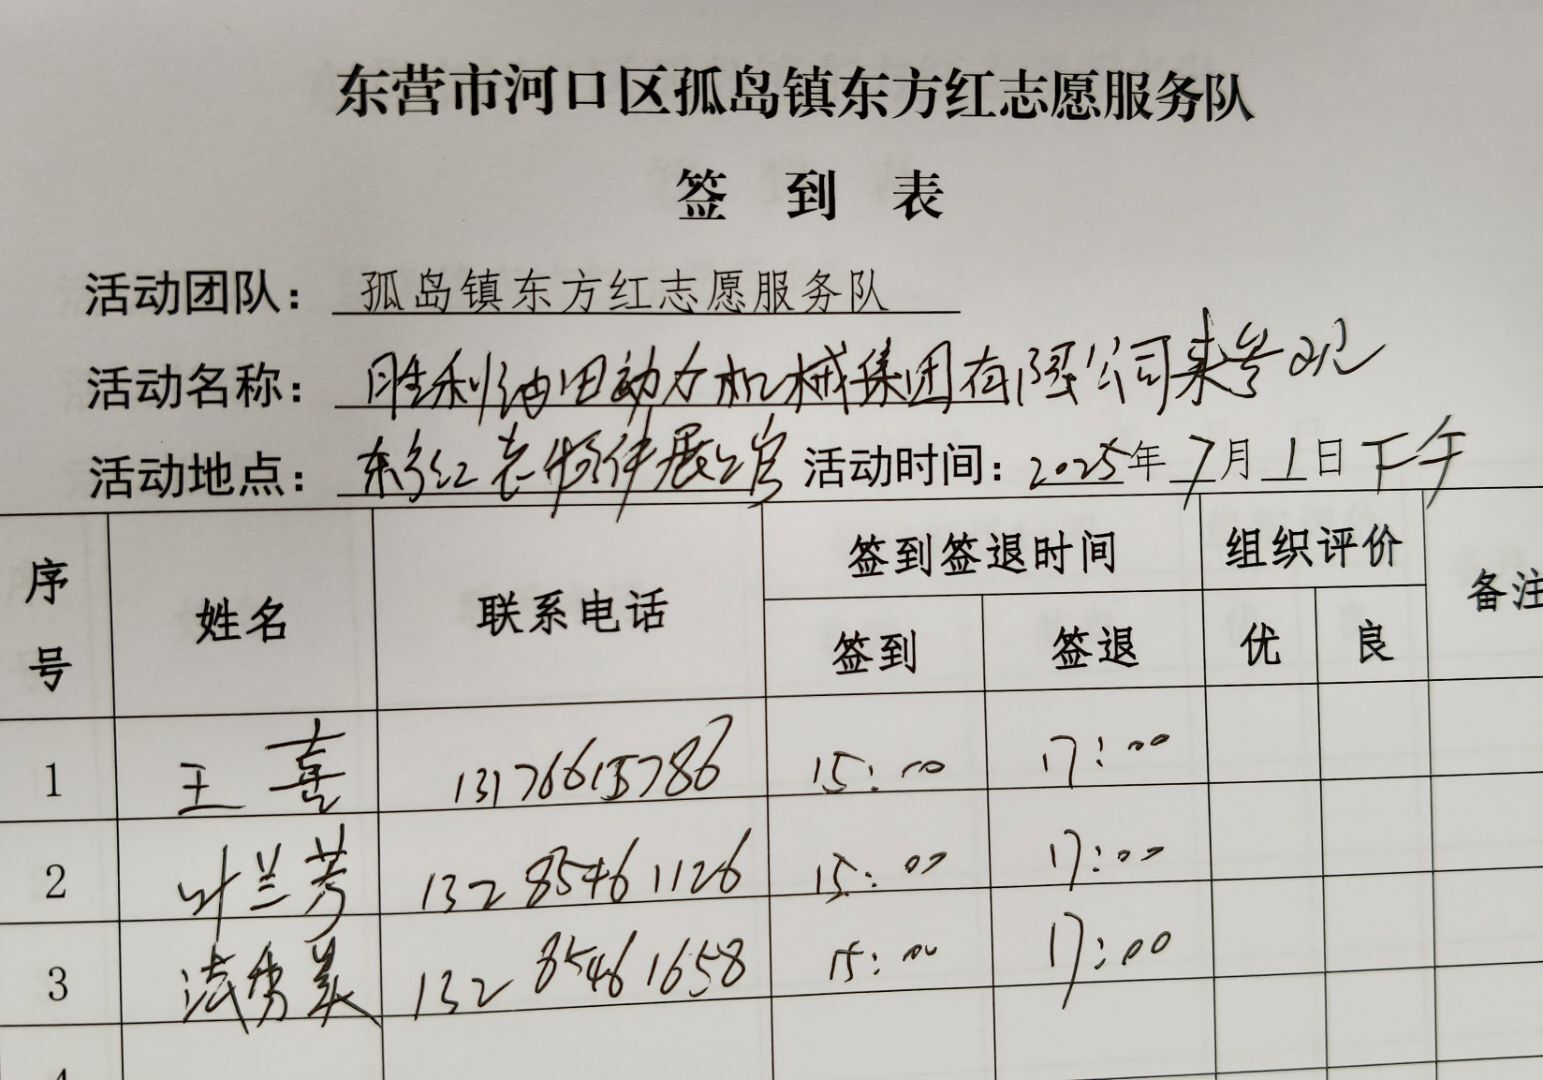 东营市河口区孤岛镇东方红志愿服务队
签 到 表
活动团队： 孤岛镇东方红志愿服务队
活动名称： 胜利油田动力机械集团有限公司来参观
活动地点： 东方红老物件展览馆 活动时间：2025年7月1日下午
序号 姓名 联系电话 签到签退时间 组织评价 备注
签到 签退 优 良
1 王喜 13176615786 15:00 17:00
2 叶兰芳 13285461126 15:00 17:00
3 法秀美 13285461658 15:00 17:00